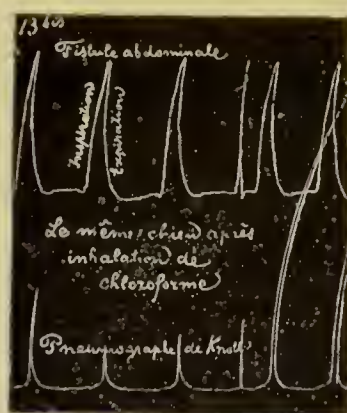 13 bis
Fistule abdominale
Inspiration
Expiration
Le même chien après
inhalation de
chloroforme
Pneumographe de Knoll